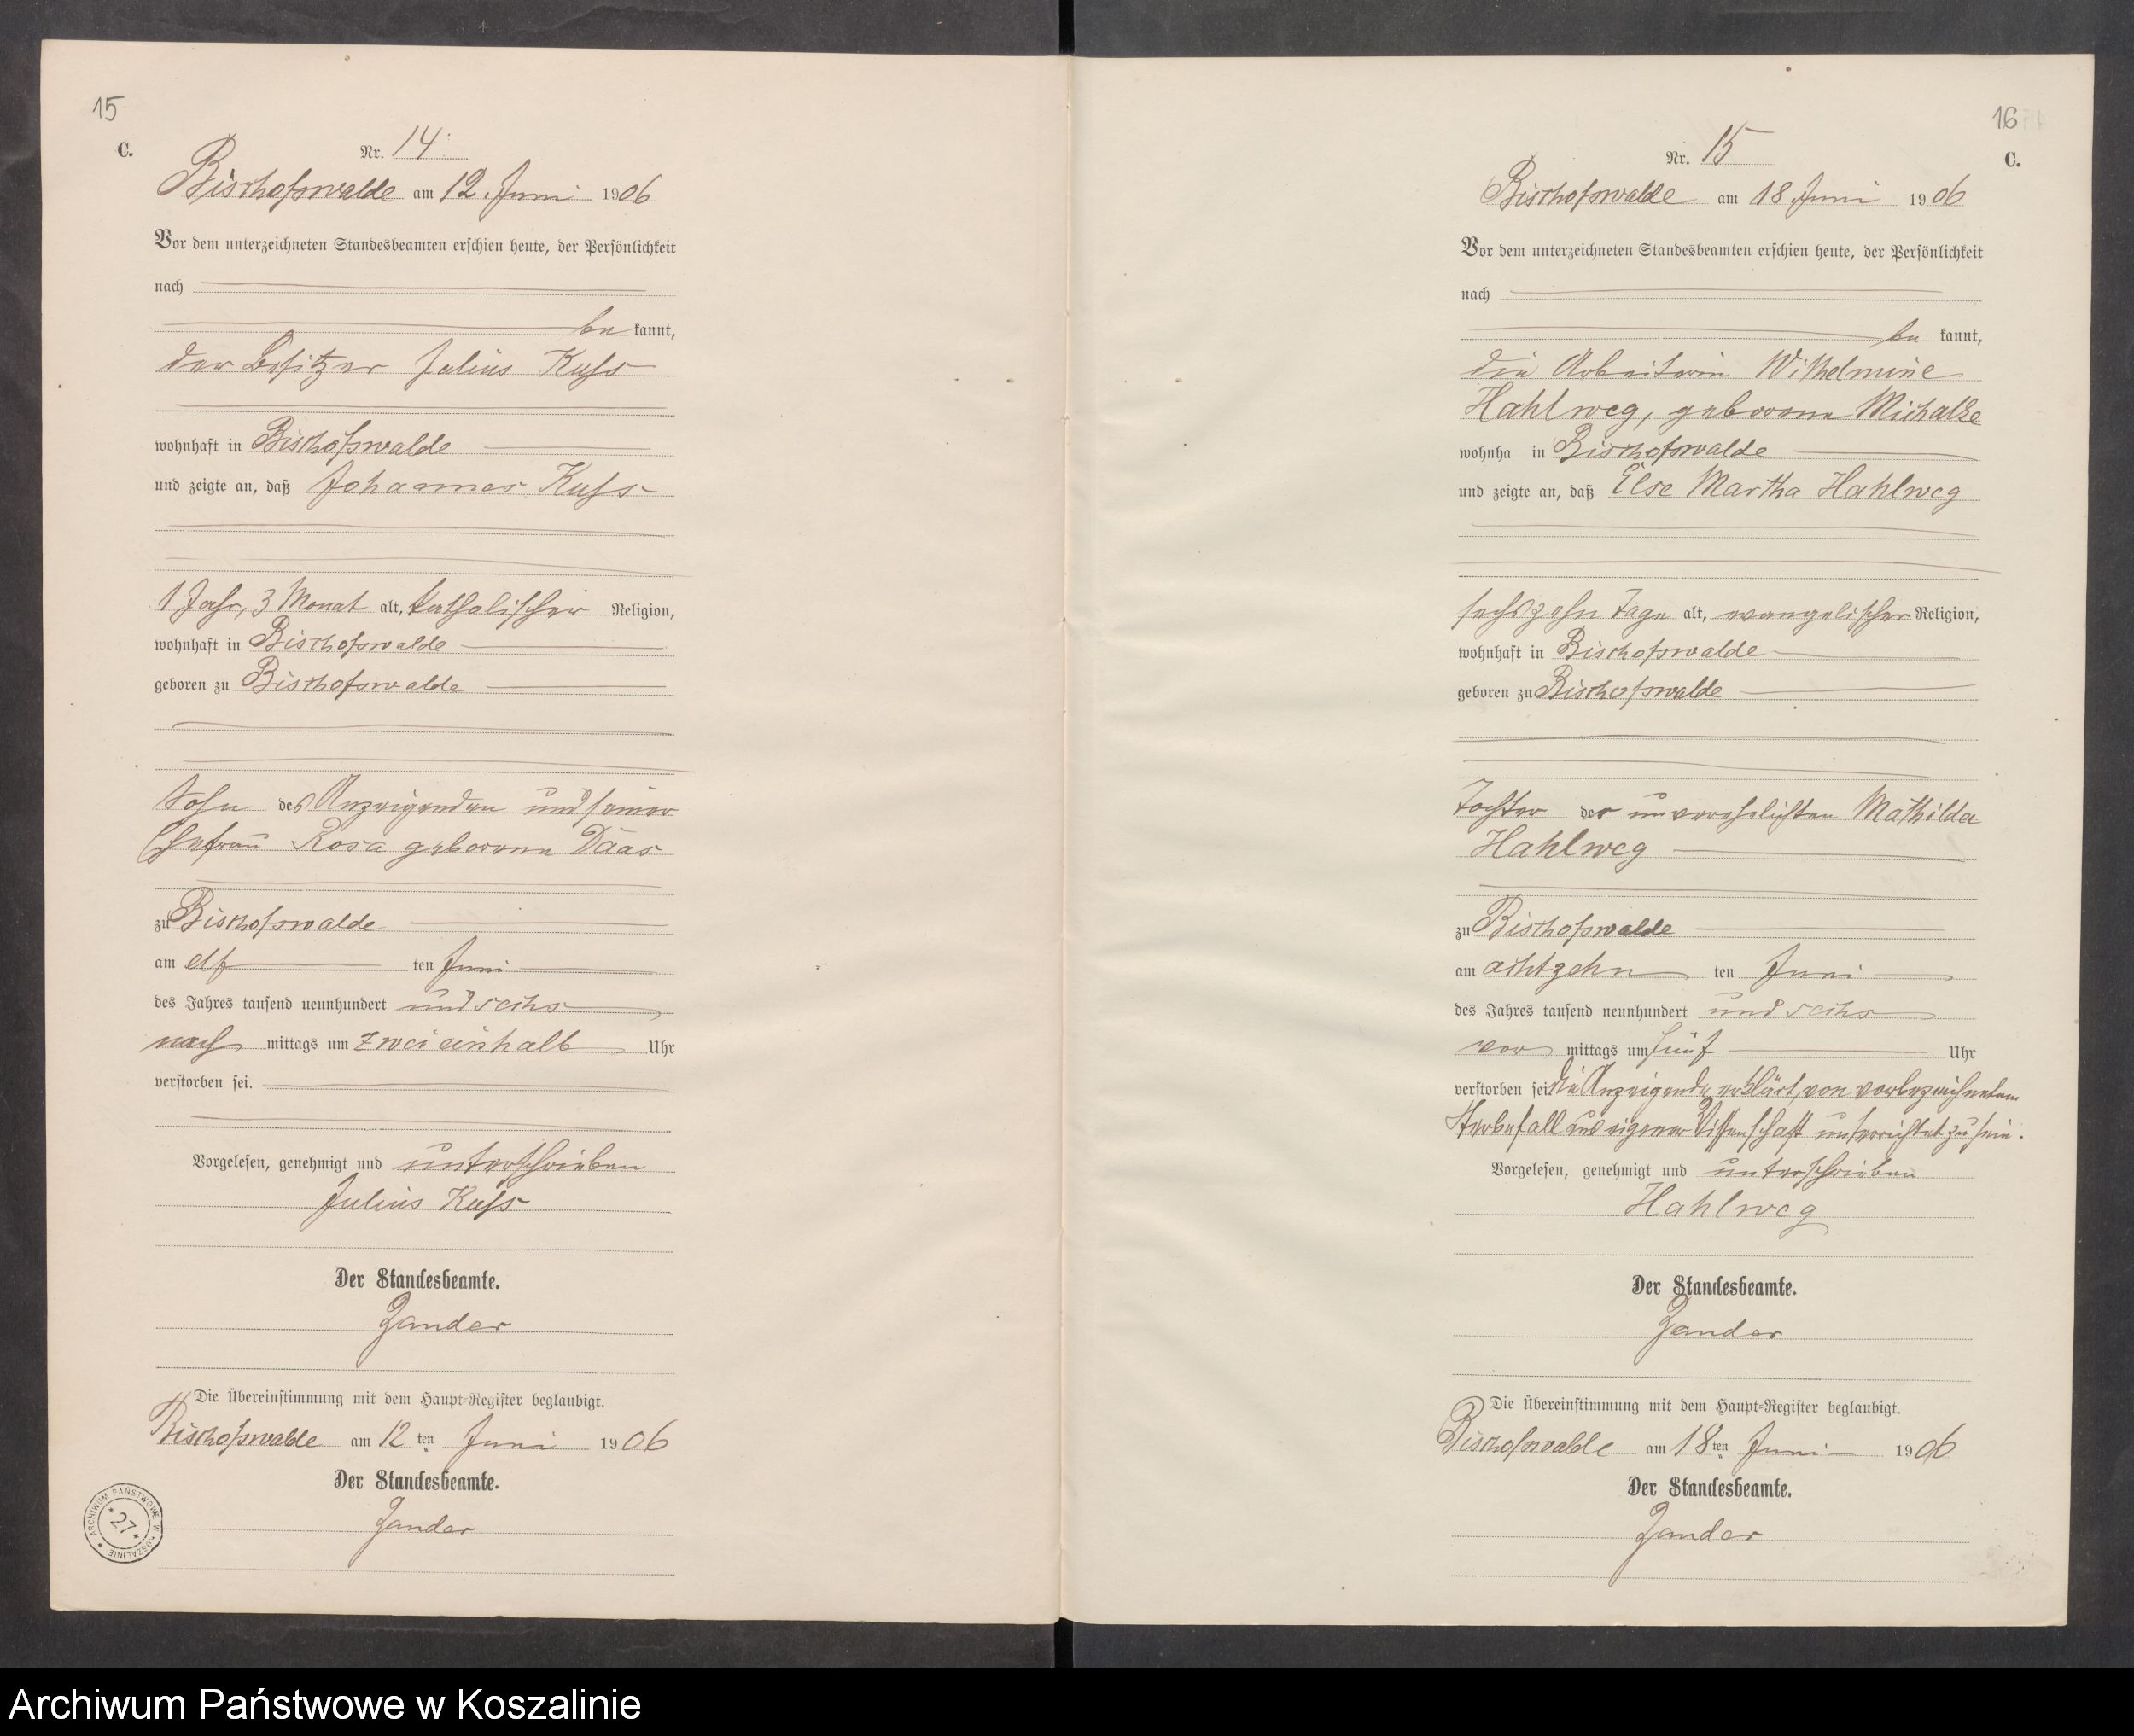 15
C.
Nr. 14.
Bischofswalde am 12. Juni 1906
Vor dem unterzeichneten Standesbeamten erschien heute, der Persönlichkeit
nach
be kannt,
der Besitzer Julius Kuss
wohnhaft in Bischofswalde
und zeigte an, daß Johannes Kuss
1 Jahr, 3 Monat alt, katholischer Religion,
wohnhaft in Bischofswalde
geboren zu Bischofswalde
Sohn des Anzeigenden und seiner
Ehefrau Rosa geborene Daas
zu Bischofswalde
am elf ten Juni
des Jahres tausend neunhundert und sechs
nach mittags um zweieinhalb Uhr
verstorben sei.
Vorgelesen, genehmigt und unterschrieben
Julius Kuss
Der Standesbeamte.
Zander
Die Übereinstimmung mit dem Haupt-Register beglaubigt.
Bischofswalde am 12 ten Juni 1906
Der Standesbeamte.
Zander
ARCHIWUM PAŃSTWOWE W KOSZALINIE
* 27 *
16
C.
Nr. 15
Bischofswalde am 18. Juni 1906
Vor dem unterzeichneten Standesbeamten erschien heute, der Persönlichkeit
nach
be kannt,
die Arbeiterin Wilhelmine
Hahlweg, geborene Michalke
wohnha in Bischofswalde
und zeigte an, daß Else Martha Hahlweg
sechszehn Tage alt, evangelischer Religion,
wohnhaft in Bischofswalde
geboren zu Bischofswalde
Tochter der unverehelichten Mathilda
Hahlweg
zu Bischofswalde
am achtzehn ten Juni
des Jahres tausend neunhundert und sechs
vor mittags um fünf Uhr
verstorben sei. Die Anzeigende erklärt, von vorbezeichnetem
Sterbefall aus eigener Wissenschaft unterrichtet zu sein.
Vorgelesen, genehmigt und unterschrieben
Hahlweg
Der Standesbeamte.
Zander
Die Übereinstimmung mit dem Haupt-Register beglaubigt.
Bischofswalde am 18 ten Juni 1906
Der Standesbeamte.
Zander
Archiwum Państwowe w Koszalinie